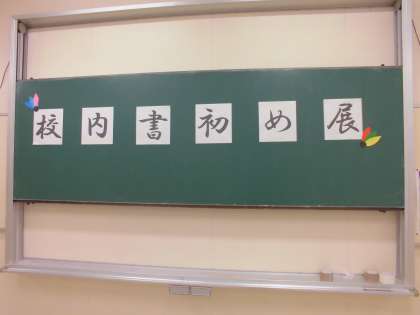 校内書初め展